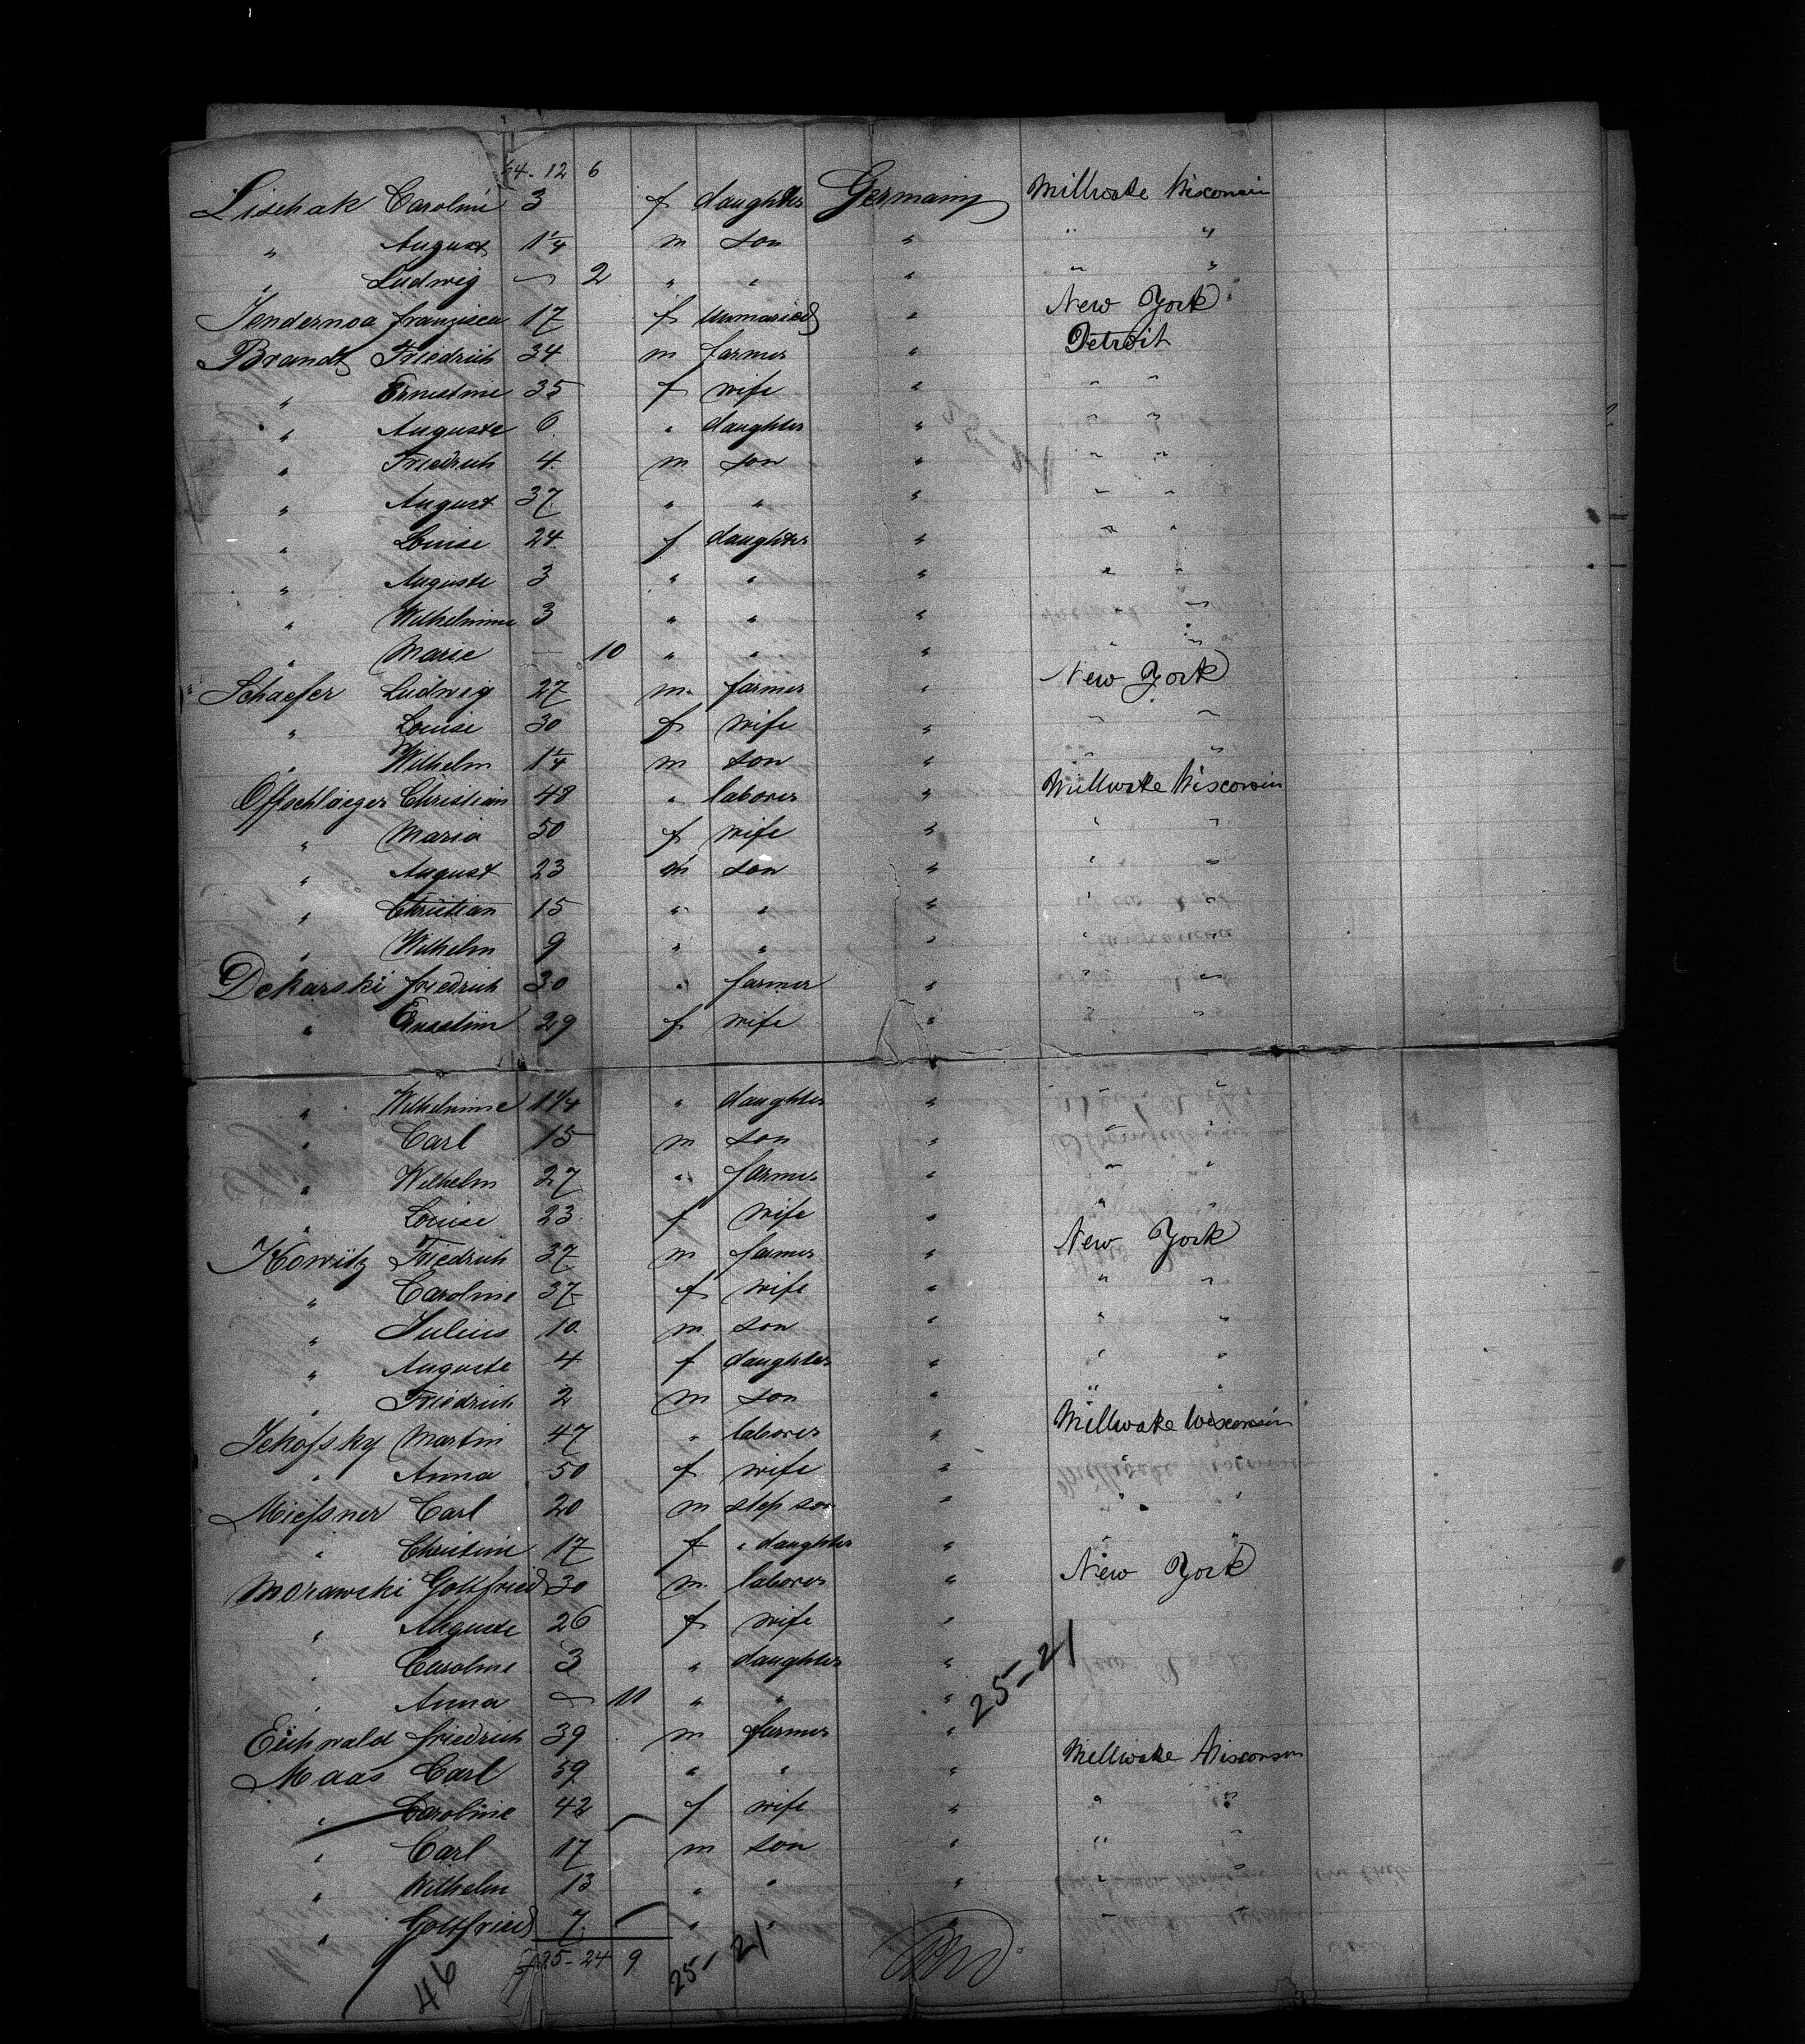 64-12 6
Lischak Caroline 3 f daughter Germany Millwake Wisconsin
" August 1 1/4 m son " " "
" Ludwig — 2 " " " " "
Jendernoa franzisca 17 f unmaried " New York
Brandt Friedrich 34 m farmer " Detroit
" Ernestine 35 f wife " " "
" Auguste 6 " daughter " " "
" Friedrich 4 m son " " "
" August 37 " " " " "
" Louise 24 f daughter " " "
" Auguste 3 " " " " "
" Wilhelmine 3 " " " " "
" Marie — 10 " " " " "
Schaefer Ludwig 27 m farmer " New York
" Louise 30 f wife " " "
" Wilhelm 1 1/4 m son " " "
Offschlaeger Christian 48 " laborer " Millwake Wisconsin
" Maria 50 f wife " " "
" August 23 m son " " "
" Christian 15 " " " " "
" Wilhelm 9 " " " " "
Dekarski friedrich 30 " farmer " " "
" 29 f wife " " "
" Wilhelmine 1 1/4 " daughter " " "
" Carl 15 m son " " "
" Wilhelm 27 " farmer " " "
" Louise 23 f wife " " "
Kowitz Friedrich 37 m farmer " New York
" Caroline 37 f wife " " "
" Julius 10 m son " " "
" Auguste 4 f daughter " " "
" Friedrich 2 m son " " "
Jehofsky Martin 47 " laborer " Millwake Wisconsin
" Anna 50 f wife " " "
Miefsner Carl 20 m step son " " "
" Christine 17 f " daughter " " "
Morawski Gottfried 30 m laborer " New York
" Auguste 26 f wife "
" Caroline 3 " daughter "
" Anna — 11 " " " 25-21
Eichwald friedrich 39 m farmer "
Maas Carl 59 " " " Millwake Wisconsin
" Caroline 42 f wife " " "
" Carl 17 m son " " "
" Wilhelm 13 " " " " "
" Gottfried 7 " " " " "
95-24 9 25-21
46